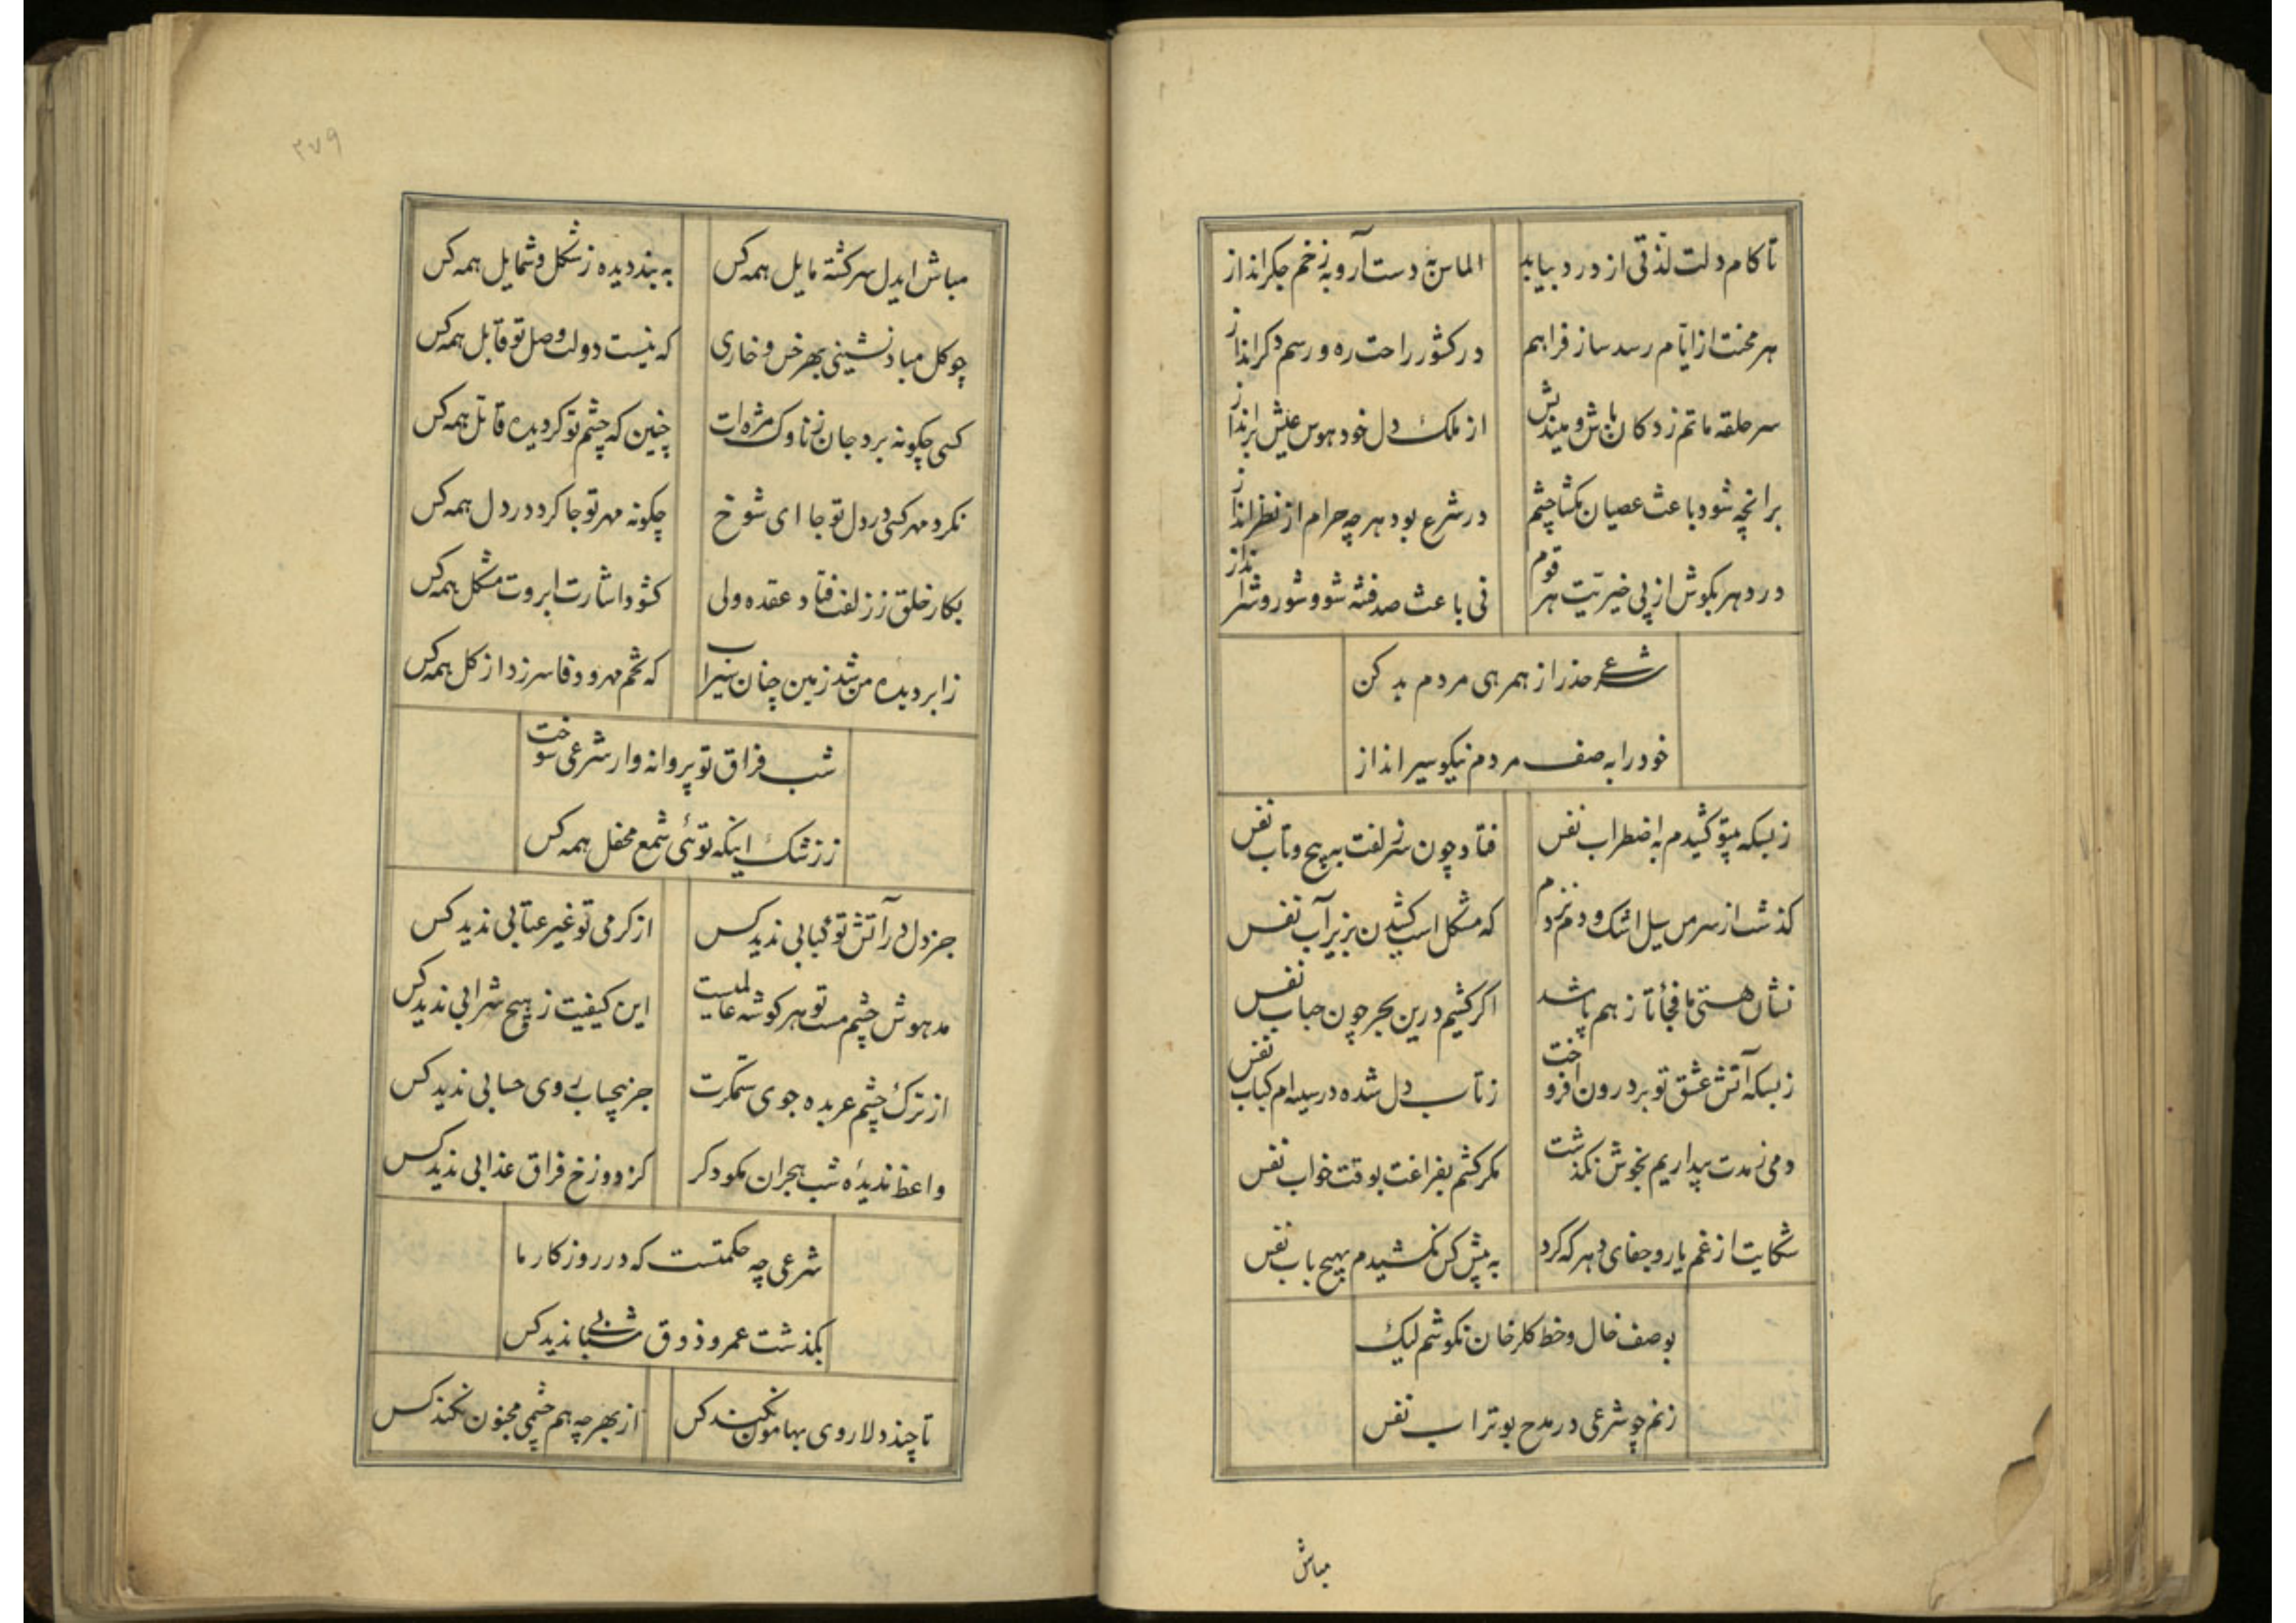 تا کام دلت لذتی از درد بیابد الماس به دست آر و به زخم جکر انداز
هر محنت از ایام رسد ساز فراهم در کشور راحت ره و رسم دکر انداز
سر حلقه ماتم زدکان باش و میندیش از ملک دل خود هوس عیش برانداز
برانچه شود باعث عصیان مکشا چشم در شرع بود هر چه حرام از نظر انداز
در دهر بکوش از پی خیریت هر قوم نی باعث صد فتنه شو و شور و شر انداز
شرعی حذر از همرهی مردم بد کن
خود را به صف مردم نیکو سیر انداز
زبسکه بیتو کشیدم به اضطراب نفس فتاد چون سر زلفت به پیچ و تاب نفس
کذشت از سر من سیل اشک و دم نزدم که مشکل است کشیدن بزیر آب نفس
نشان هستی ما فجأتا ز هم پاشد اکر کشیم درین بحر چون حباب نفس
زبسکه آتش عشق تو بر درون افروخت ز تاب دل شده در سینه ام کباب نفس
دمی ز مدت بیداریم بخوش نکذشت مکر کشم بفراغت بوقت خواب نفس
شکایت از غم یار و جفای دهر که کرد به پیش کس نکشیدم بهیچ باب نفس
بوصف خال و خط کلرخان نکوشم لیک
زنم چو شرعی در مدح بوتراب نفس
مباش
۲۷۹
مباش ایدل سرکشته مایل همه کس به بند دیده ز شکل و شمایل همه کس
چو کل مباد نشینی بهر خس و خاری که نیست دولت وصل تو قابل همه کس
کسی چکونه برد جان ز ناوک مژه ات چنین که چشم تو کردیده قاتل همه کس
نکرد مهر کسی در دل تو جا ای شوخ چکونه مهر تو جا کرد در دل همه کس
بکار خلق ز زلفت فتاد عقده ولی کشود اشارت ابروت مشکل همه کس
ز ابر دیده من شد زمین چنان سیراب که تخم مهر و وفا سرزد از کل همه کس
شب فراق تو پروانه وار شرعی سوخت
ز رشک اینکه توئی شمع محفل همه کس
جز دل در آتش تو کبابی ندید کس از کرمی تو غیر عتابی ندید کس
مدهوش چشم مست تو هر کوشه عالمیست این کیفیت ز هیچ شرابی ندید کس
از ترک چشم عربده جوی ستمکرت جز بیحسابی وی حسابی ندید کس
واعظ ندیدهٔ شب هجران مکو دکر کز دوزخ فراق عذابی ندید کس
شرعی چه حکمتست که در روزکار ما
بکذشت عمر و ذوق شبابی ندید کس
تا چند دلا روی بهامون نکند کس از بهر چه هم چشمی مجنون نکند کس